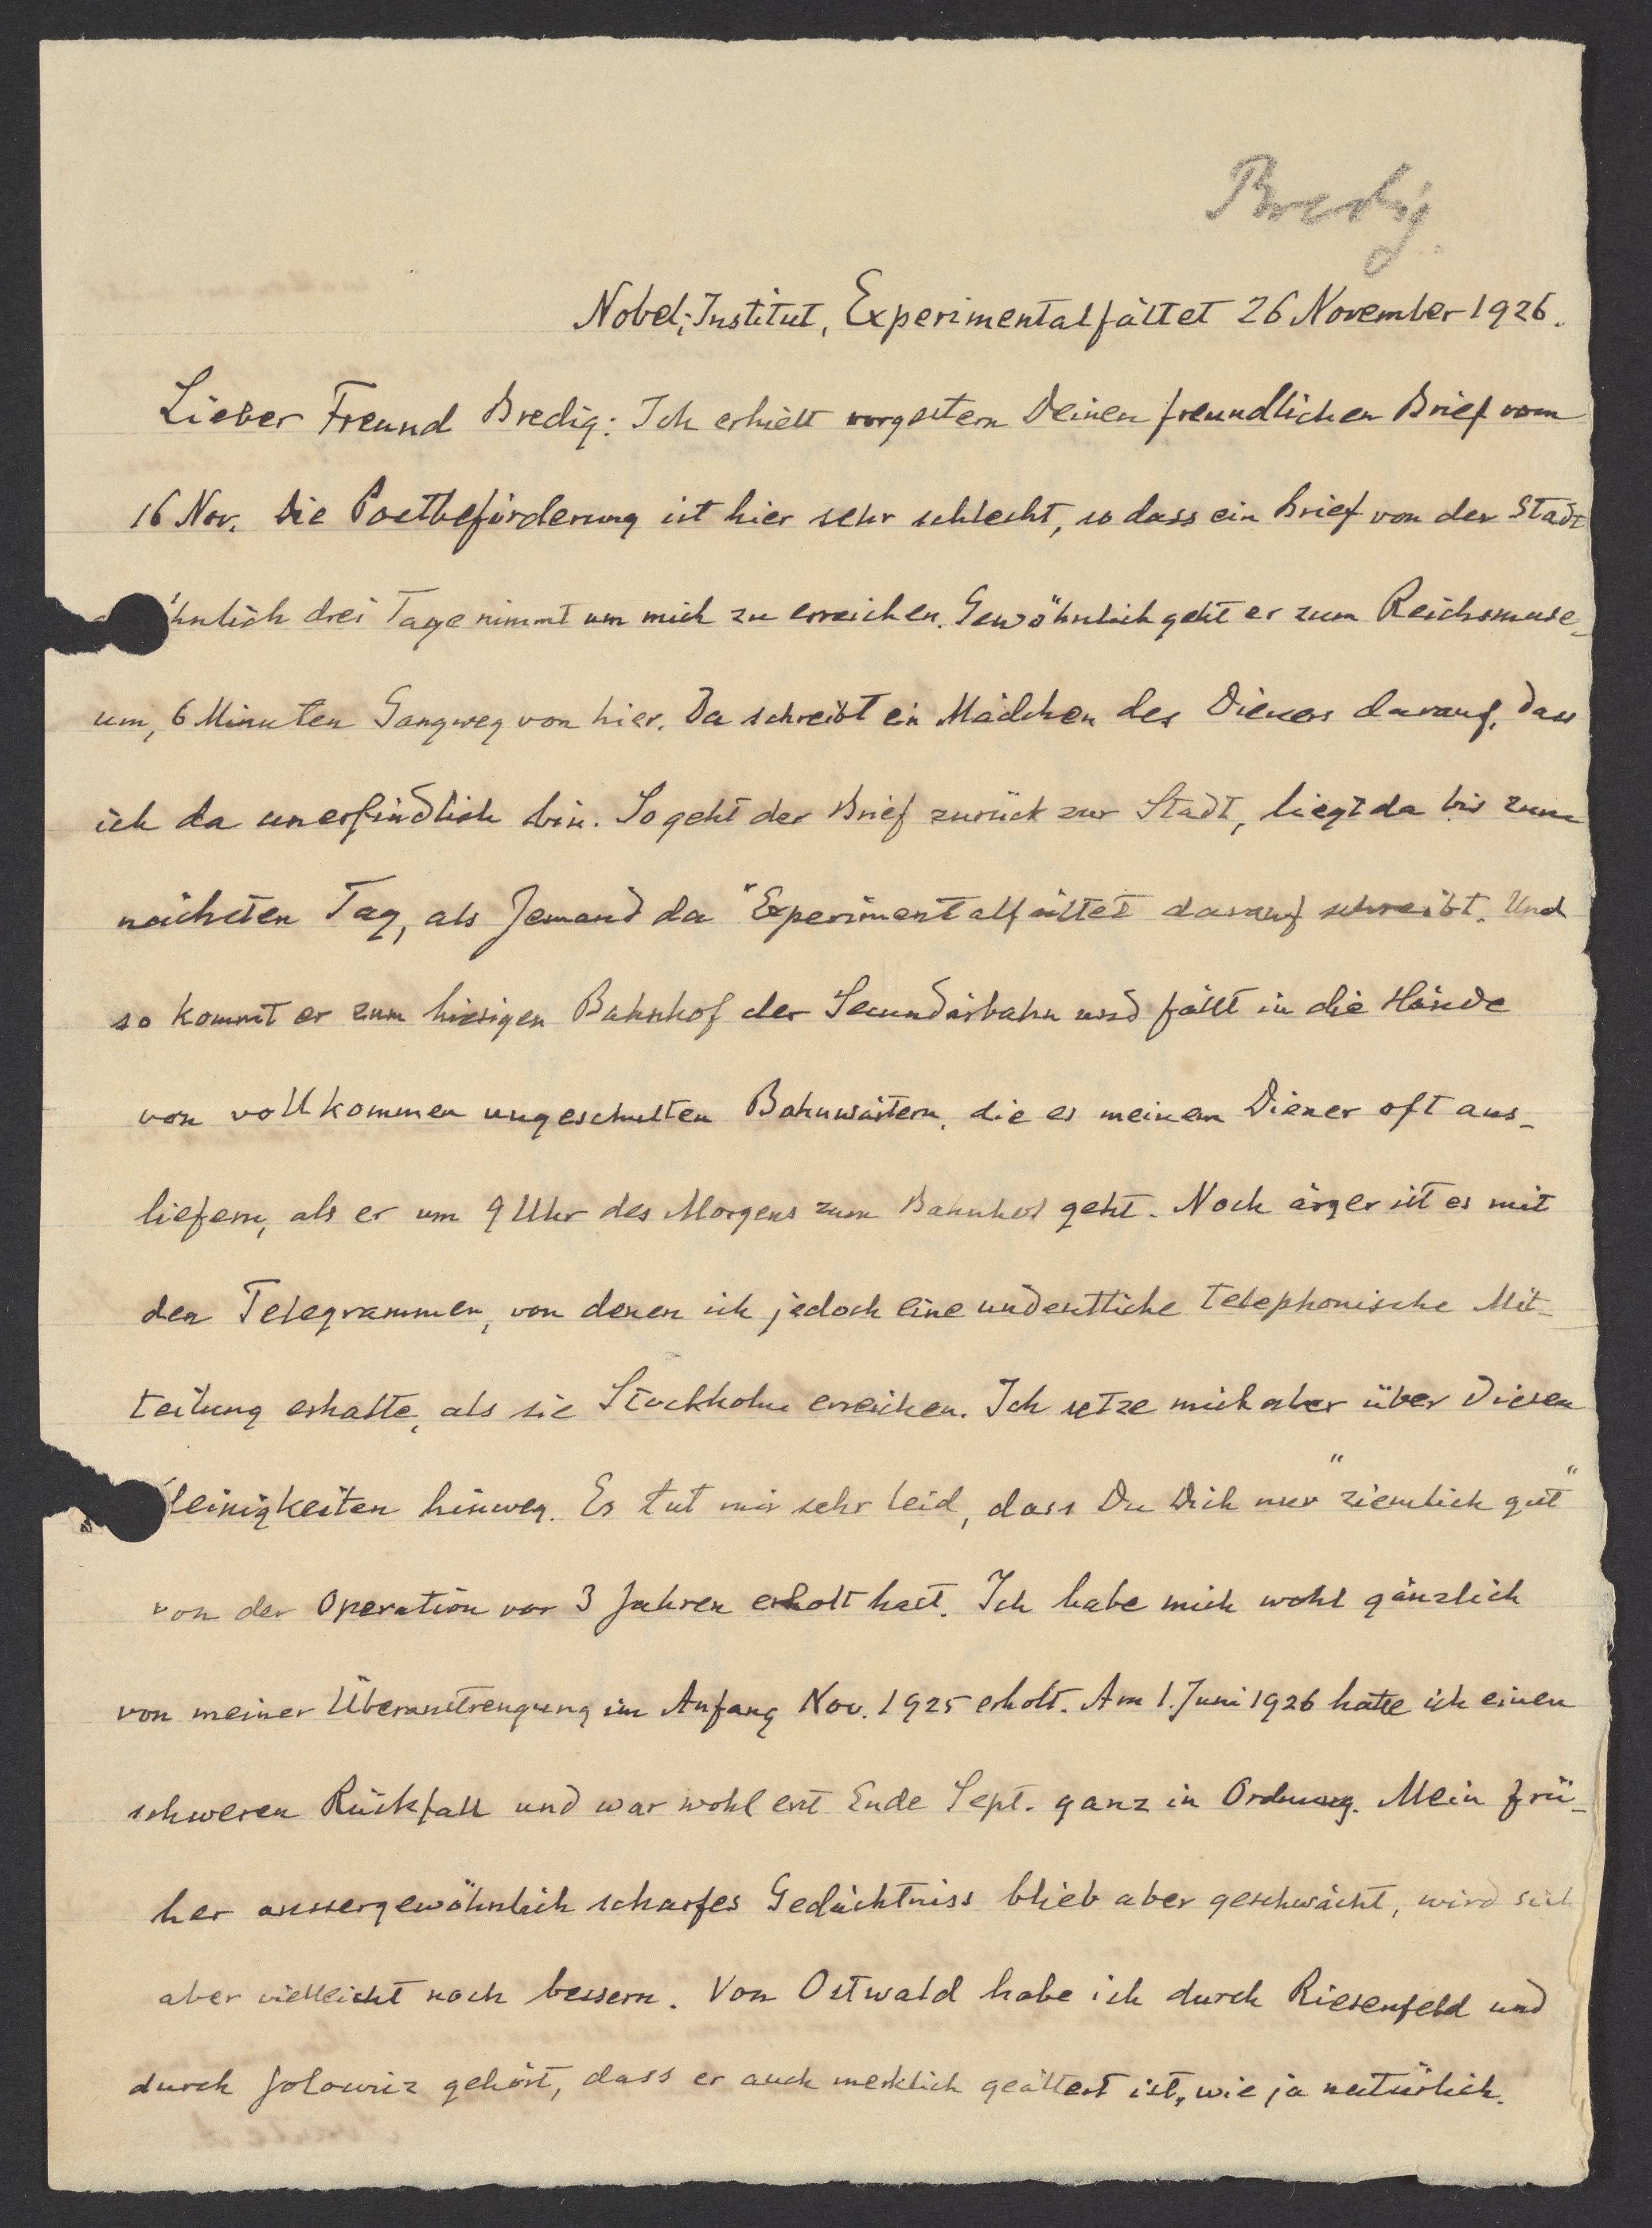 Bredig.
Nobel-Institut, Experimentalfältet 26 November 1926.
Lieber Freund Bredig: Ich erhielt vorgestern Deinen freundlichen Brief vom
16 Nov. Die Postbeförderung ist hier sehr schlecht, so dass ein Brief von der Stadt
öhnlich drei Tage nimmt um mich zu erreichen. Gewöhnlich geht er zum Reichsmuse-
um, 6 Minuten Gangweg von hier. Da schreibt ein Mädchen des Dieners darauf, dass
ich da unerfindlich bin. So geht der Brief zurück zur Stadt, liegt da bis zum
nächsten Tag, als Jemand da "Experimentalfältet darauf schreibt. Und
so kommt er zum hiesigen Bahnhof der Secundärbahn und fällt in die Hände
von vollkommen ungeschulten Bahnwärtern, die es meinem Diener oft aus-
liefern, als er um 9 Uhr des Morgens zum Bahnhof geht. Noch ärger ist es mit
den Telegrammen, von denen ich jedoch eine undeutliche telephonische Mit-
teilung erhalte, als sie Stockholm erreichen. Ich setze mich aber über diesen
leinigkeiten hinweg. Es tut mir sehr leid, dass Du Dich nur "ziemlich gut"
von der Operation vor 3 Jahren erholt hast. Ich habe mich wohl gänzlich
von meiner Überanstrengung im Anfang Nov. 1925 erholt. Am 1. Juni 1926 hatte ich einen
schweren Rückfall und war wohl erst Ende Sept. ganz in Ordnung. Mein frü-
her aussergewöhnlich scharfes Gedächtniss blieb aber geschwächt, wird sich
aber vielleicht noch bessern. Von Ostwald habe ich durch Riesenfeld und
durch Jolowicz gehört, dass er auch merklich geältert ist, wie ja natürlich.